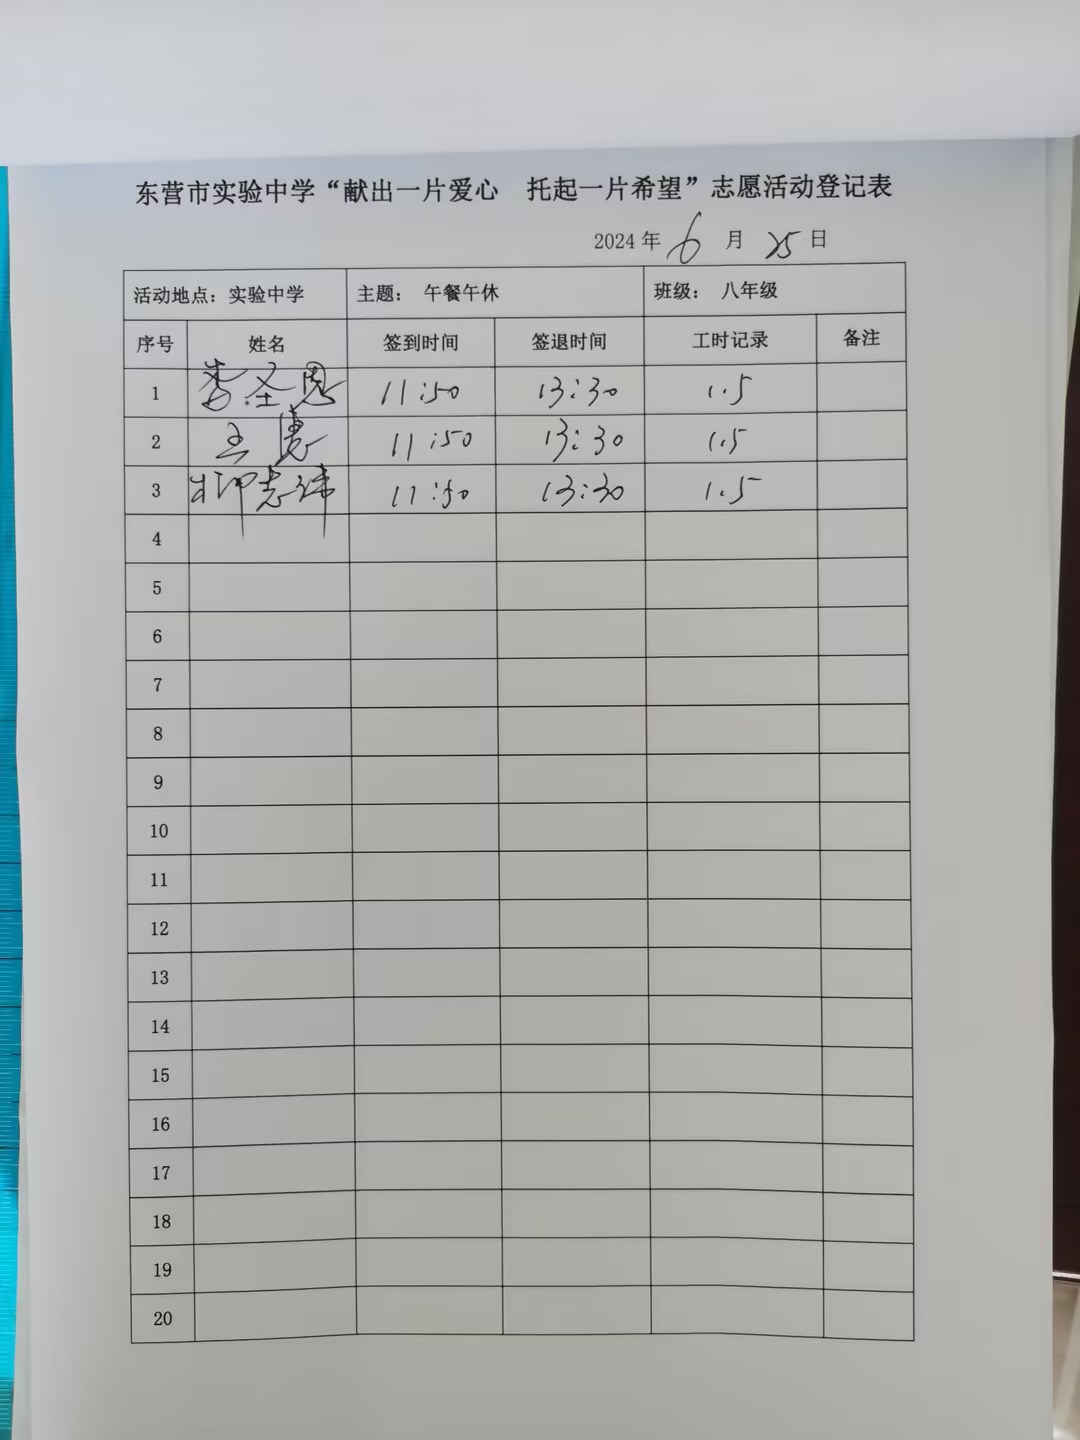 东营市实验中学“献出一片爱心 托起一片希望”志愿活动登记表
2024 年 6 月 25 日
活动地点： 实验中学 主题： 午餐午休 班级： 八年级
序号 姓名 签到时间 签退时间 工时记录 备注
1 李圣恩 11:50 13:30 1.5
2 王 11:50 13:30 1.5
3 柳志 11:50 13:30 1.5
4
5
6
7
8
9
10
11
12
13
14
15
16
17
18
19
20